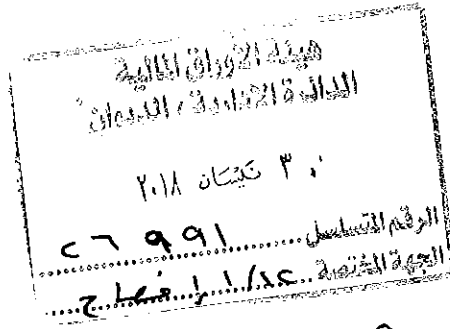 هيئة الأوراق المالية
الدائرة الإدارية / الديوان
٣٠ نيسان ٢٠١٨
الرقم المتسلسل
الجهة المختصة إفصاح